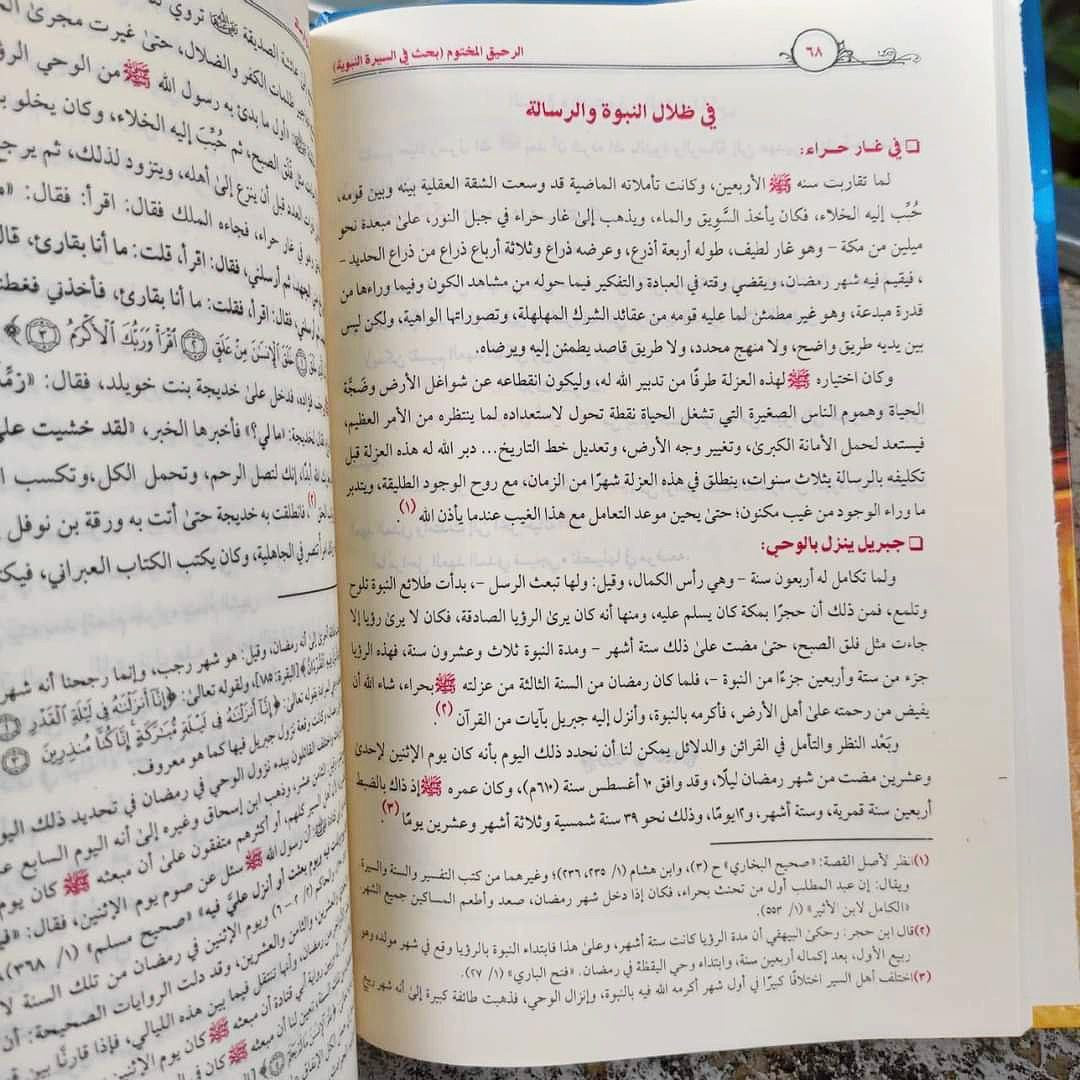 ٦٨
الرحيق المختوم (بحث في السيرة النبوية)
في ظلال النبوة والرسالة
❑ في غار حراء:
لما تقاربت سنه ﷺ الأربعين، وكانت تأملاته الماضية قد وسعت الشقة العقلية بينه وبين قومه،
حُبِّب إليه الخلاء، فكان يأخذ السَّوِيق والماء، ويذهب إلىٰ غار حراء في جبل النور، علىٰ مبعدة نحو
ميلين من مكة – وهو غار لطيف، طوله أربعة أذرع، وعرضه ذراع وثلاثة أرباع ذراع من ذراع الحديد –
، فيقيم فيه شهر رمضان، ويقضي وقته في العبادة والتفكير فيما حوله من مشاهد الكون وفيما وراءها من
قدرة مبدعة، وهو غير مطمئن لما عليه قومه من عقائد الشرك المهلهلة، وتصوراتها الواهية، ولكن ليس
بين يديه طريق واضح، ولا منهج محدد، ولا طريق قاصد يطمئن إليه ويرضاه.
وكان اختياره ﷺ لهذه العزلة طرفًا من تدبير الله له، وليكون انقطاعه عن شواغل الأرض وضَجَّة
الحياة وهموم الناس الصغيرة التي تشغل الحياة نقطة تحول لاستعداده لما ينتظره من الأمر العظيم،
فيستعد لحمل الأمانة الكبرىٰ، وتغيير وجه الأرض، وتعديل خط التاريخ... دبر الله له هذه العزلة قبل
تكليفه بالرسالة بثلاث سنوات، ينطلق في هذه العزلة شهرًا من الزمان، مع روح الوجود الطليقة، ويتدبر
ما وراء الوجود من غيب مكنون؛ حتىٰ يحين موعد التعامل مع هذا الغيب عندما يأذن الله (١).
❑ جبريل ينزل بالوحي:
ولما تكامل له أربعون سنة – وهي رأس الكمال، وقيل: ولها تبعث الرسل –، بدأت طلائع النبوة تلوح
وتلمع، فمن ذلك أن حجرًا بمكة كان يسلم عليه، ومنها أنه كان يرىٰ الرؤيا الصادقة، فكان لا يرىٰ رؤيا إلا
جاءت مثل فلق الصبح، حتىٰ مضت علىٰ ذلك ستة أشهر – ومدة النبوة ثلاث وعشرون سنة، فهذه الرؤيا
جزء من ستة وأربعين جزءًا من النبوة –، فلما كان رمضان من السنة الثالثة من عزلته ﷺ بحراء، شاء الله أن
يفيض من رحمته علىٰ أهل الأرض، فأكرمه بالنبوة، وأنزل إليه جبريل بآيات من القرآن (٢).
وبَعْد النظر والتأمل في القرائن والدلائل يمكن لنا أن نحدد ذلك اليوم بأنه كان يوم الإثنين لإحدى
وعشرين مضت من شهر رمضان ليلًا، وقد وافق ١٠ أغسطس سنة (٦١٠م)، وكان عمره ﷺ إذ ذاك بالضبط
أربعين سنة قمرية، وستة أشهر، و١٢يومًا، وذلك نحو ٣٩ سنة شمسية وثلاثة أشهر وعشرين يومًا (٣).
(١)انظر لأصل القصة: «صحيح البخاري» ح (٣)، وابن هشام (١/ ٢٣٥، ٢٣٦)؛ وغيرهما من كتب التفسير والسنة والسيرة.
ويقال: إن عبد المطلب أول من تحنث بحراء، فكان إذا دخل شهر رمضان، صعد وأطعم المساكين جميع الشهر.
«الكامل لابن الأثير» (١/ ٥٥٣).
(٢)قال ابن حجر: رحكىٰ البيهقي أن مدة الرؤيا كانت ستة أشهر، وعلىٰ هذا فابتداء النبوة بالرؤيا وقع في شهر مولده وهو
ربيع الأول، بعد إكماله أربعين سنة، وابتداء وحي اليقظة في رمضان. «فتح الباري» (١/ ٢٧).
(٣)اختلف أهل السير اختلافًا كبيرًا في أول شهر أكرمه الله فيه بالنبوة، وإنزال الوحي، فذهبت طائفة كبيرة إلىٰ أنه شهر ربيع
عائشة الصديقة تروي
ظلمات الكفر والضلال، حتىٰ غيرت مجرىٰ
«أول ما بدئ به رسول الله ﷺ من الوحي الرؤ
فلق الصبح، ثم حُبِّبَ إليه الخلاء، وكان يخلو
العدد قبل أن ينزع إلىٰ أهله، ويتزود لذلك، ثم يرجع
وهو في غار حراء، فجاءه الملك فقال: اقرأ: فقال:
الجهد، ثم أرسلني، فقال: اقرأ، قلت: ما أنا بقارئ، قال
أرسلني، فقال: اقرأ، فقلت: ما أنا بقارئ، فأخذني فغط
خَلَقَ ١ خَلَقَ الْإِنسَٰنَ مِنْ عَلَقٍ ٢ ٱقْرَأْ وَرَبُّكَ ٱلْأَكْرَمُ ٣ ﴾
فؤاده، فدخل علىٰ خديجة بنت خويلد، فقال:
لخديجة: «ما لي؟» فأخبرها الخبر، «لقد خشيت على
الله أبدًا، إنك لتصل الرحم، وتحمل الكل،وتكسب
(٢)، فانطلقت به خديجة حتىٰ أتت به ورقة بن نوفل
تنصر في الجاهلية، وكان يكتب الكتاب العبراني، فيك
إلىٰ أنه رمضان، وقيل: هو شهر رجب، وإنما رجحنا أنه شهر
[البقرة: ١٨٥]، ولقوله تعالىٰ: ﴿إِنَّا أَنزَلْنَٰهُ فِي لَيْلَةِ ٱلْقَدْرِ ١
قوله تعالىٰ: ﴿إِنَّا أَنزَلْنَٰهُ فِي لَيْلَةٍ مُّبَٰرَكَةٍ إِنَّا كُنَّا مُنذِرِينَ ٣
نزول جبريل فيها كما هو معروف.
القائلون ببدء نزول الوحي في رمضان في تحديد ذلك اليو
وذهب ابن إسحاق وغيره إلىٰ أنه اليوم السابع
أهل السير كلهم، أو أكثرهم متفقون علىٰ أن مبعثه ﷺ كان يوم
أن رسول الله ﷺ سئل عن صوم يوم الإثنين، فقال: «
ويوم بعثت أو أنزل عليَّ فيه» «صحيح مسلم» (١/ ٣٦٨)
ويوم الإثنين في رمضان من تلك السنة لا
والثامن والعشرين، وقد دلت الروايات الصحيحة: أن
رمضان، وأنها تنتقل فيما بين هذه الليالي، فإذا قارنَّا بين
رواية أبي قتادة أن مبعثه ﷺ كان يوم الإثنين